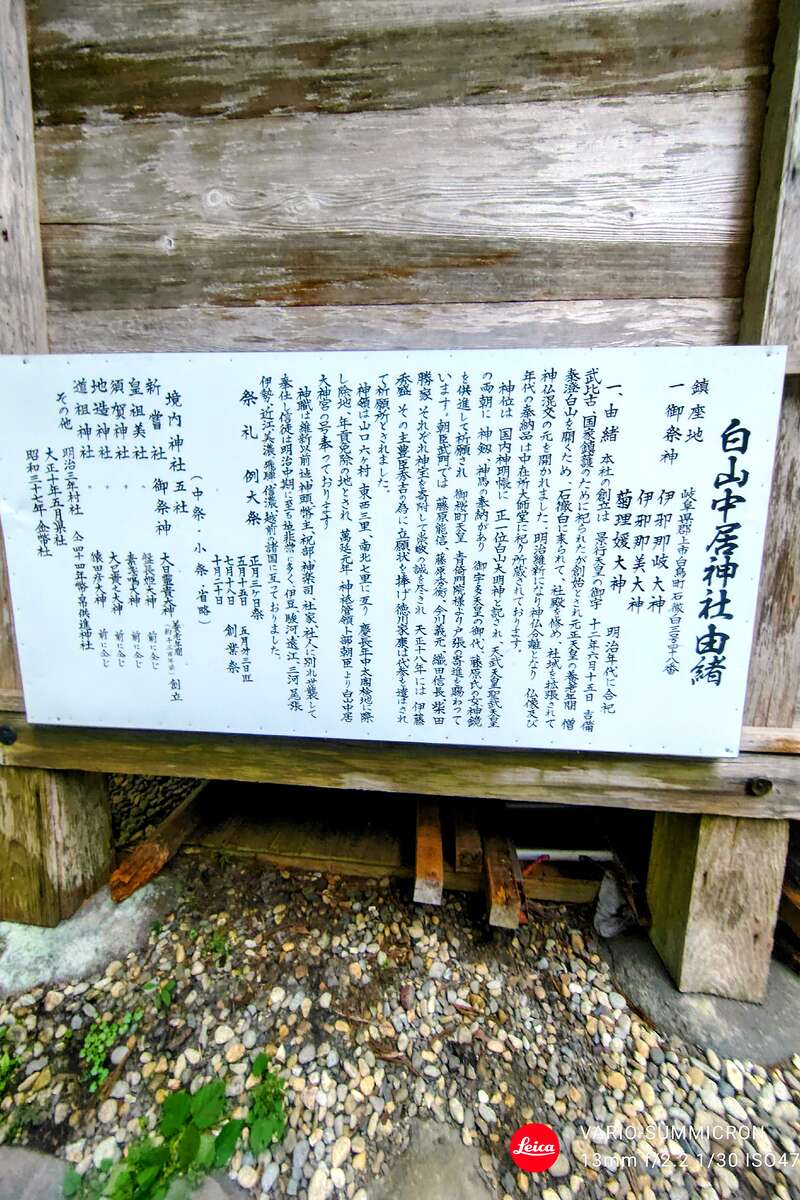 白山中居神社由緒
鎮座地 岐阜県郡上市白鳥町石徹白三号四十八番
一 御祭神 伊邪那岐大神
伊邪那美大神
菊理媛大神 明治年代に合祀
一、由緒 本社の創立は 景行天皇の御宇 十二年六月十五日 吉備
武比古 国家鎮護のために祀られたが創始とされ元正天皇の養老年間 僧
泰澄白山を開くため、石徹白に来られて、社殿を修め、社域を拡張されて
神仏混交の元を開かれました。明治維新になり神仏分離となり 仏像及び
年代の奉納品は中在所大師堂に祀り所蔵されております。
神位は 国内神明帳に 正一位白山大明神と記され、天武天皇聖武天皇
の両朝に 神剱、神馬の奉納があり 御宇多天皇の御代、藤原氏の女神鏡
を供進して祈願され 御桜町天皇 青綺門院様より戸張の寄進を賜わって
います。朝臣武門では 藤原能信 藤原秀衡、今川義元 織田信長 柴田
勝家、それぞれ神宝を寄附して崇敬の誠を尽され 天正十八年には 伊藤
秀盛 その主豊臣秀吉の為に立願状を捧げ徳川家康は代参を遣ばされ
て祈願所とされました。
神領は山口六ヶ村、東西三里、南北七里に亘り 慶長年中太閤検地に際
し除地、年貢免除の地とされ 萬延元年 神祗管領上部朝臣より白山中居
大神宮の号を奉っております
神職は維新以前迄神頭幣主祝部 神楽司 社家 社人に別れ世襲して
奉仕し信徒は明治中期に至る迄非常に多く、伊豆 駿河 遠江 三河 尾張
伊勢 近江 美濃 飛騨 信濃 越前の諸国に亙っておりました。
祭礼 例大祭 正月三ヶ日祭
五月十五日 五月廿三日
七月十八日 創業祭
十月二十日
(中祭・小祭・省略)
境内神社五社 御祭神
新嘗社 大日孁貴大神 創立
皇祖美社 前に仝じ
須賀神社 素盞鳴大神 前に仝じ
地造神社 大己貴之大神 前に仝じ
道祖神社 猿田彦大神 前に仝じ
その他 明治三年村社 仝四十四年幣帛供進神社
大正十年五月県社
昭和三十七年 金幣社
Leica
VARIO-SUMMICRON
13mm f/2.2 1/30 ISO47